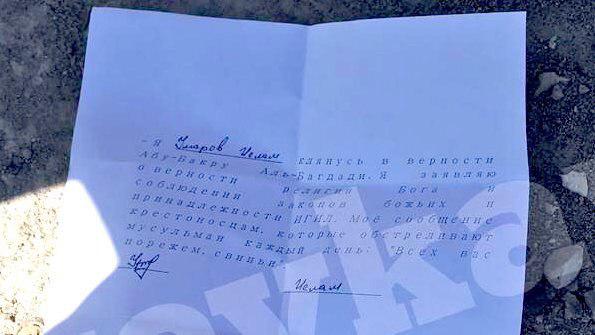 - Я Умаров Ислам клянусь в верности
Абу-Бакру Аль-Багдади. Я заявляю
о верности религии Бога и
соблюдении законов божьих и
принадлежности ИГИЛ. Моё сообщение
крестоносцам, которые обстреливают
мусульман каждый день: "Всех вас
порежем, свиньи".
Ислам